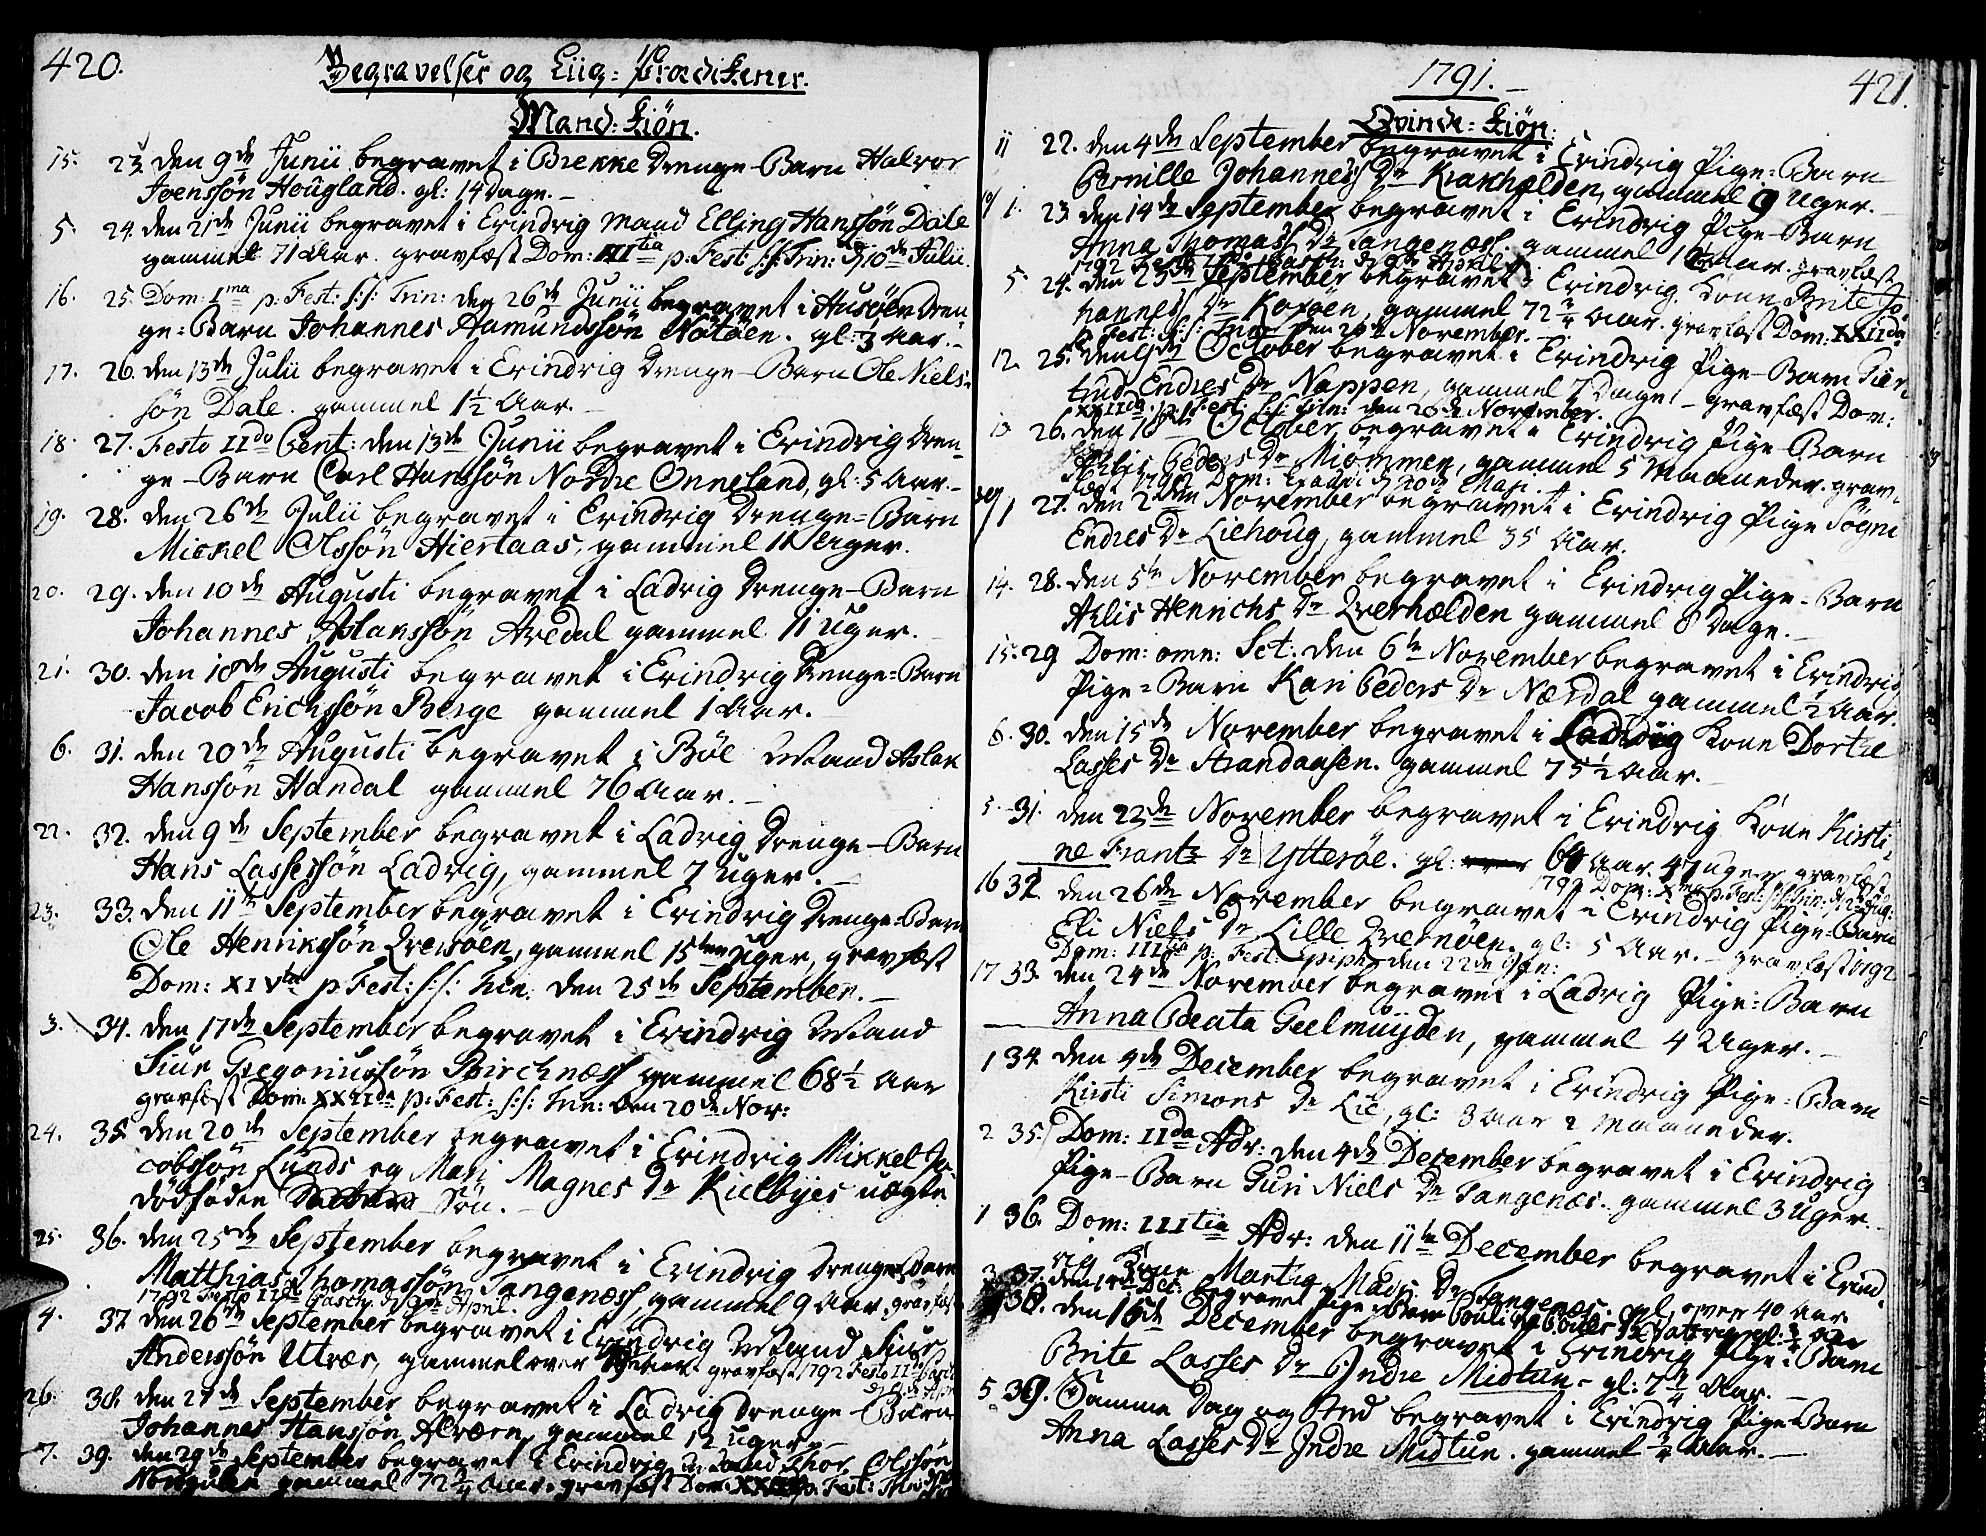 420.
Begravelser og Liig=Prædikener.
Mand=Kiön.
15. 23 den 9de Junii begravet i Brekke Drenge-Barn Halvor
Joenssön Hougland. gl: 14 Dage.
5 24. den 21de Junii begravet i Evindvig Mand Elling Hanssön Dale
gammel 71 Aar. gravfæst Dom: IIItia p: Fest: S:S: Trin: d. 10de Julii.
16. 25. Dom: Ima p: Fest: S:S: Trin: den 26de Junii begravet i Husöen Dren-
ge=Barn Johannes Aamundssön Nötöen. gl: 3 Aar.
17. 26. den 13de Julii begravet i Evindvig Drenge-Barn Ole Niels-
sön Dale. gammel 1½ Aar.
18. 27. Festo IIdo Pent: den 13de Junii begravet i Evindvig Dren-
ge-Barn Carl Hanssön Nordre Onneland, gl: 5 Aar.
19. 28. den 26de Julii begravet i Evindvig Drenge-Barn
Mickel Olssön Hiertaas, gammel 11 Uger.
20. 29. den 10de Augusti begravet i Ladvig Drenge-Barn
Johannes Aslanssön Avedal gammel 11 Uger.
21. 30. den 18de Augusti begravet i Evindvig Drenge=Barn
Jacob Erichssön Berge gammel 1 Aar.
6. 31. den 20de Augusti begravet i Böe Mand Aslak
Hanssön Handal gammel 76 Aar.
22. 32. den 9de September begravet i Ladvig Drenge-Barn
Hans Lassessön Ladvig, gammel 7 Uger.
23. 33. den 11te September begravet i Evindvig Drenge=Barn
Ole Henrikssön Qversöen, gammel 15ten Uger, gravfæst
Dom: XIVta p Fest: S:S: Trin: den 25de September.
3. 34. den 17de September begravet i Evindvig Mand
Siur Gregoriussön Birchnæss gammel 68½ Aar
gravfæst Dom: XXIIda p: Fest: S:S: Trin: den 20de Nov:
24. 35 den 20de September begravet i Evindvig Mikkel Ja-
cobssön Lunds og Mari Magnes Dr Kielbyes uægte
dödföden Sön.
25. 36. den 25de September begravet i Evindvig Drenge Barn
Matthias Thomassön Tangenæss, gammel 9 Aar, gravfæst
1792 Festo IIdo Pasch: d. 9de April.
4. 37. den 26de September begravet i Evindvig Mand Siur
Anderssön Utvær, gammel over gravfæst 1792 Festo IIdo Pasch:
26. 38. den 27de September begravet i Ladvig Drenge-Barn
Johannes Hanssön Alværn gammel 12 Uger.
7. 39. den 29de September begravet i Evindvig Mand Thor Olssön
gammel 72¾ Aar. gravfæst Dom: p: Fest: Trin:
1791.
421.
Qvinde=Kiön.
11 22. den 4de September begravet i Evindvig Pige=Barn
Pernille Johannes Dr Krakhælden, gammel 9 Uger.
1. 23. den 14de September begravet i Evindvig Pige-Barn
Anna Thomass Dr Tangenæss. gammel Aar. gravfæst
1792 Festo IIdo Pasch: d. 9de April
5. 24. den 23de September begravet i Evindvig Kone Brite Jo-
hannes Dr Kaxöen, gammel 72¾ Aar. gravfæst Dom: XXIIda
p: Fest: S:S: Trin: den 20de November.
12. 25. den October begravet i Evindvig Pige-Barn Gier-
trud Endres Dr Nappen, gammel 7 Dage. gravfæst Dom:
XXIIda p: Fest: S:S: Trin: den 20de November.
13 26. den 18de October begravet i Evindvig Pige-Barn
Peders Dr Miömmen, gammel 5 Maaneder. grav-
fæst 1792 Dom: Exaudi d. 20de Maji
1 27. den 2den November begravet i Evindvig Pige Sögni
Endres Dr Liehoug, gammel 35 Aar.
14. 28. den 5te November begravet i Evindvig Pige=Barn
Ahlis Henrichs Dr Qverhælden gammel 8 Dage.
15. 29 Dom: omn: Sct: den 6te November begravet i Evindvig
Pige=Barn Kari Peders Dr Nærdal gammel ½ Aar.
6. 30. den 15de November begravet i Ladvig Kone Dorthe
Lasses Dr Strandaasen. gammel 75½ Aar.
5. 31. den 22de November begravet i Evindvig Kone Kirsti-
ne Frantz Dr Ytteröe. gl: 64 Aar 47 Uger gravfæst
1792 Dom: Xma p: Fest: S:S: Trin: d. Aug:
16 32. den 26de November begravet i Evindvig Pige=Barn
Eli Niels Dr Lille Qvernöen. gl: 5 Aar. gravfæst 1792
Dom: IIItia p: Fest: Epiph: den 22de Jan:
17 33. den 24de November begravet i Ladvig Pige=Barn
Anna Beata Geelmuyden, gammel 4 Uger.
1 34. den 4de December begravet i Evindvig Pige=Barn
Kirsti Simons Dr Lie, gl: 8 Aar 2 Maaneder.
2 35. Dom: IIda Adv: den 4de December begravet i Evindvig
Pige-Barn Guri Niels Dr Tangenæs. gammel 3 Uger.
1 36. Dom: IIItia Adv: den 11te December begravet i Evind-
vig Kone Martha Mads Dr Tangenæs. gl. over 40 Aar
3 37. den 14de Dec: begravet Pige-Barn
38. den 16de December begravet i Evindvig Pige=Barn
Brite Lasses Dr Indre Midtun. gl: 7¾ Aar.
5 39. Samme Dag og Sted begravet i Evindvig Pige-Barn
Anna Lasses Dr Indre Midtun. gammel ¾ Aar.